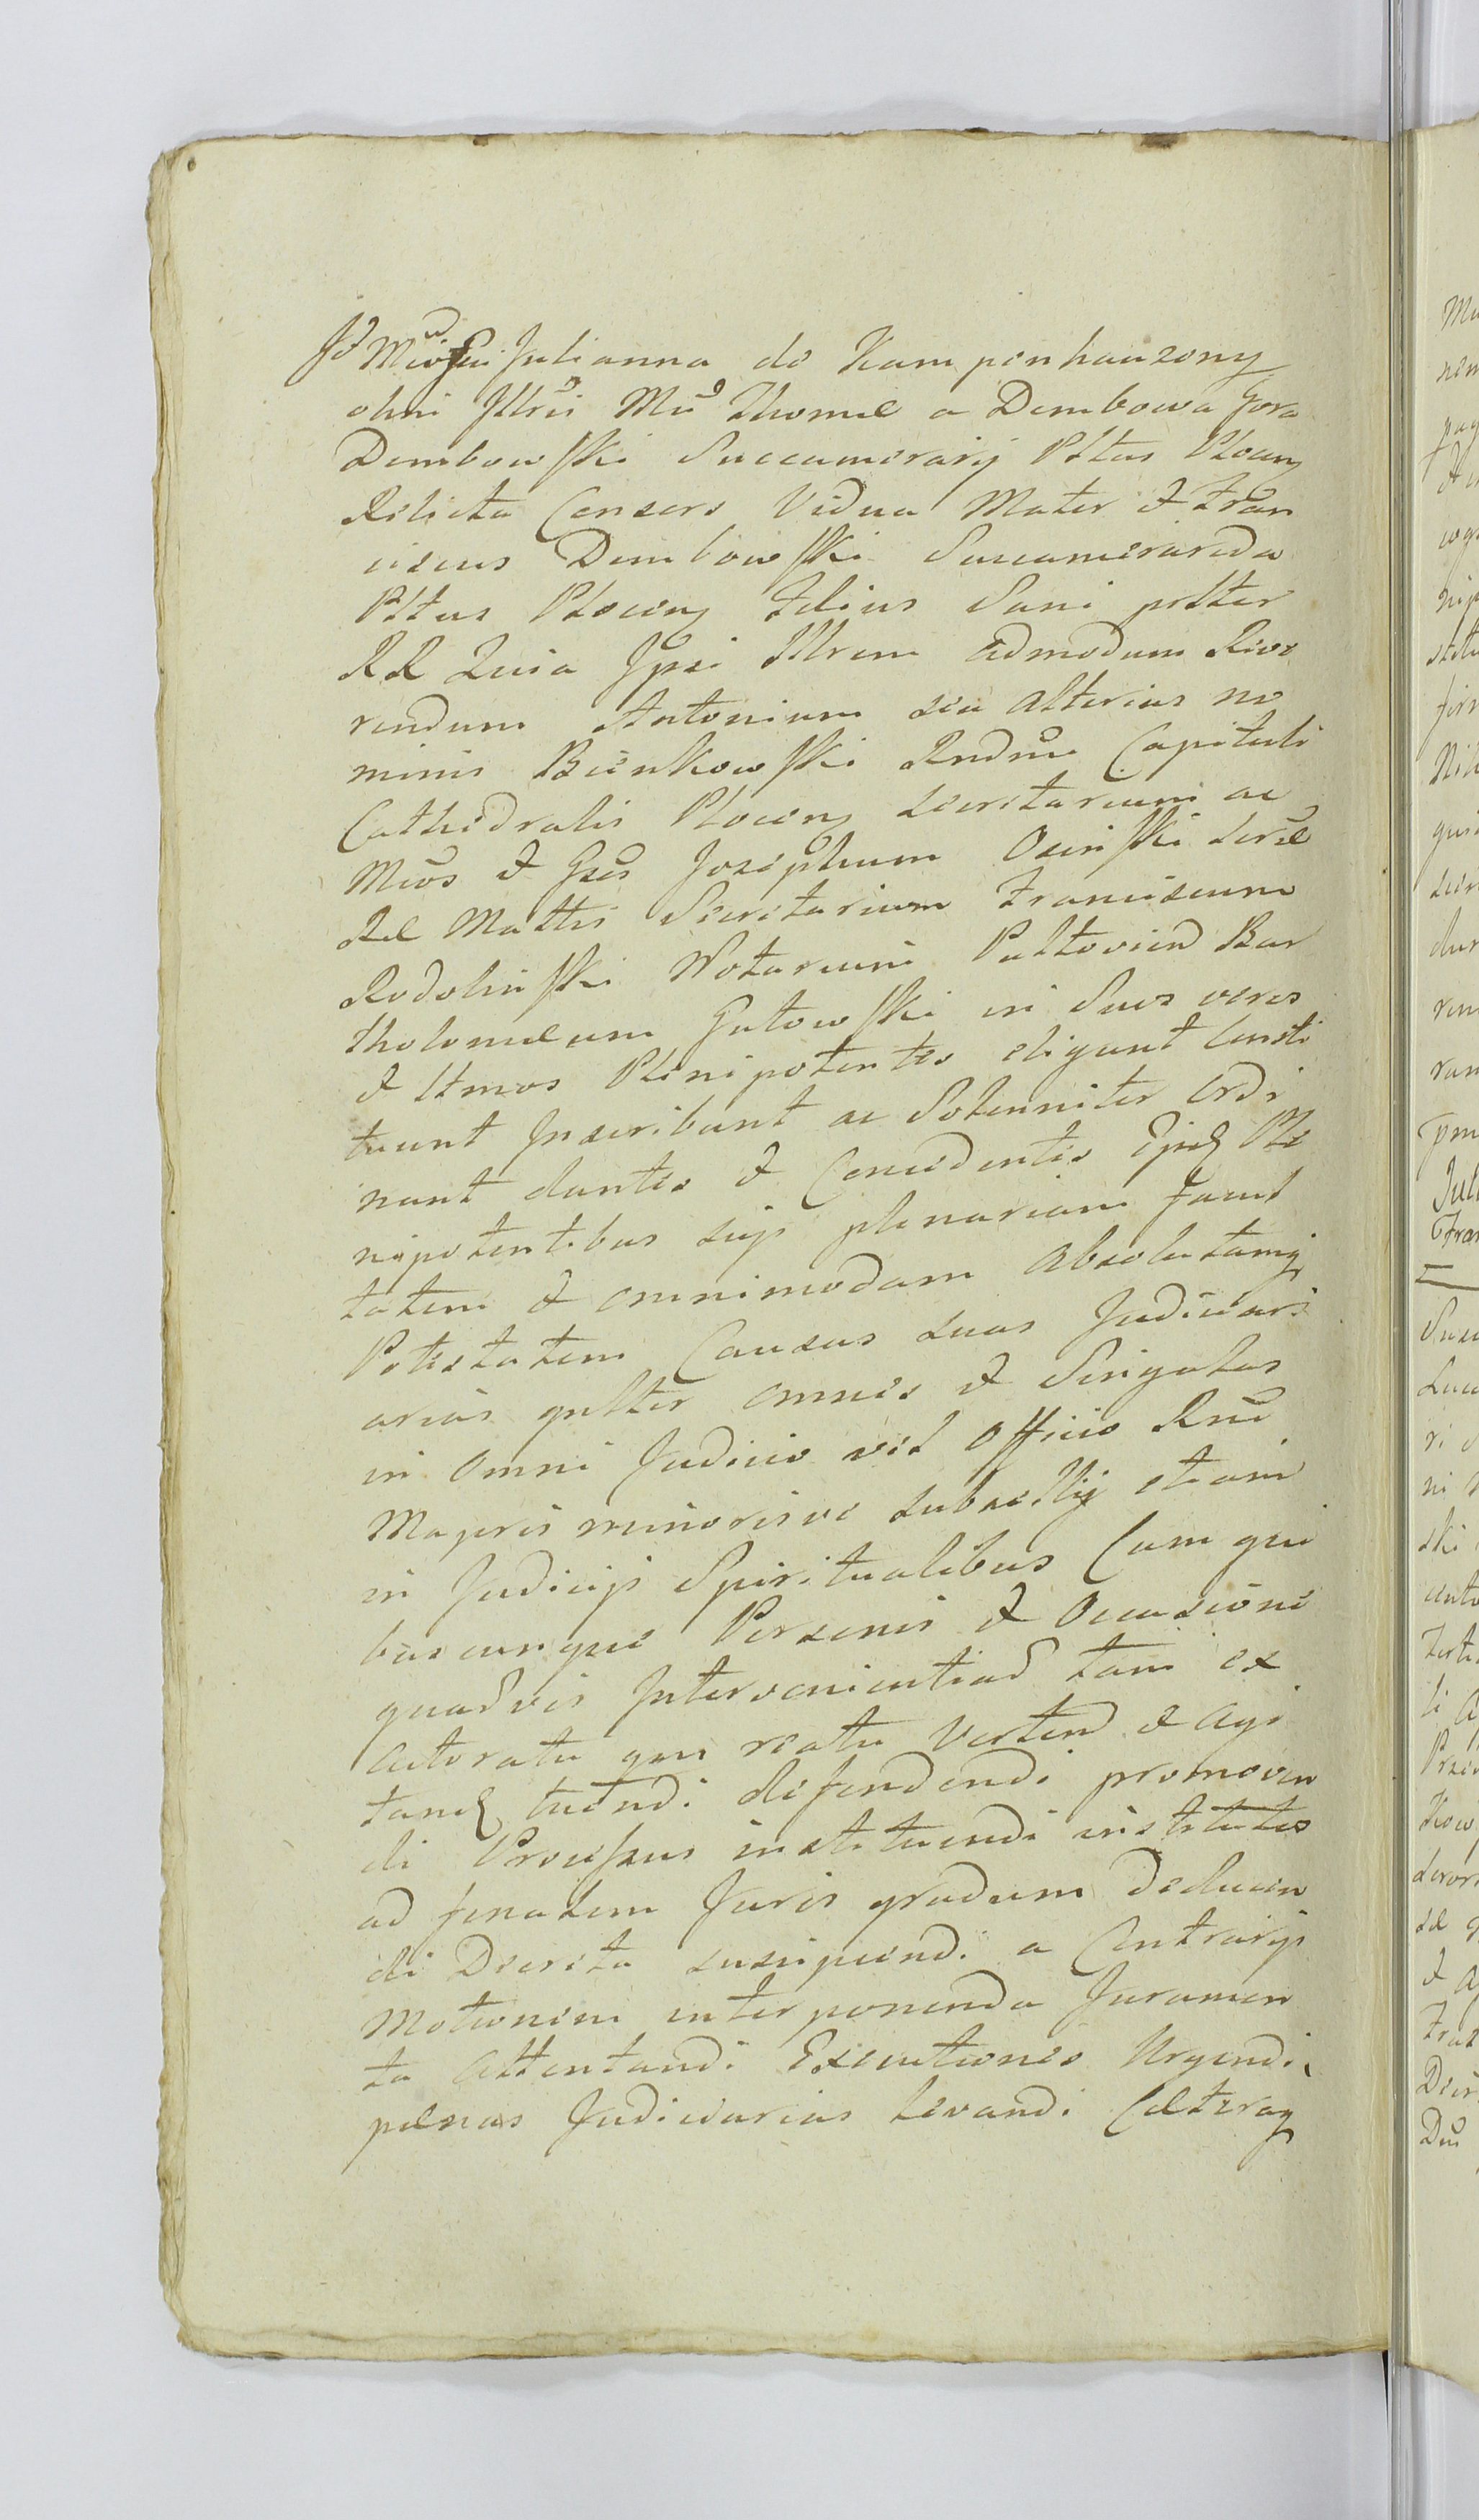 Julianna de Kampenhauzony
olim Illris Mci Thomæ a Dembowa Gora
Dembowski Succamerarij Pltus Plocen
Relicta Consors Vidua Mater & Fran
ciscus Dembowski Succamerarida
Pltus Plocen Filius Sani pltter
RR Quia Ipsi Illrem admodum Reve
rendum Antonium seu alterius no
minis Bienkowski Rndmi Capituli
Cathedralis Plocen Secretarium ac
Mcos & Gsos Josephum Osinski Seræ
Ræ Mattis Secretarium Franciscum
Rodolinski Notarium Pultovien Bar
tholomæum Gutowski in Suos veros
& ltmos Plenipotentes eligunt Consti
tuunt Inscribunt ac Solenniter Ordi
nant dantes & Concedentes Ejusd Ple
nipotentibus suis plenariam facul
tatem & omnimodam Absolutamq
Potestatem Causas suas Judiciari
arias gnltter omnes & Singulas
in Omni Judicio vel Officio Rni
Majoris minorisve Subsellij etiam
in Judicijs Spiritualibus Cum qui
buscunque Personis & Occasione
quadvis Intervenientiad tam ex
actoratu qm reatu Verten & agi
tand tuendi defendendi promoven
di Processus instituendi institutos
ad finalem Juris gradum deducen
di Decreta suscipiendi a Contrarijs
Motionem interponenda Juramen
ta Attentandi Executiones Urgendi
pænas Judiciarias Levandi Cæteraq